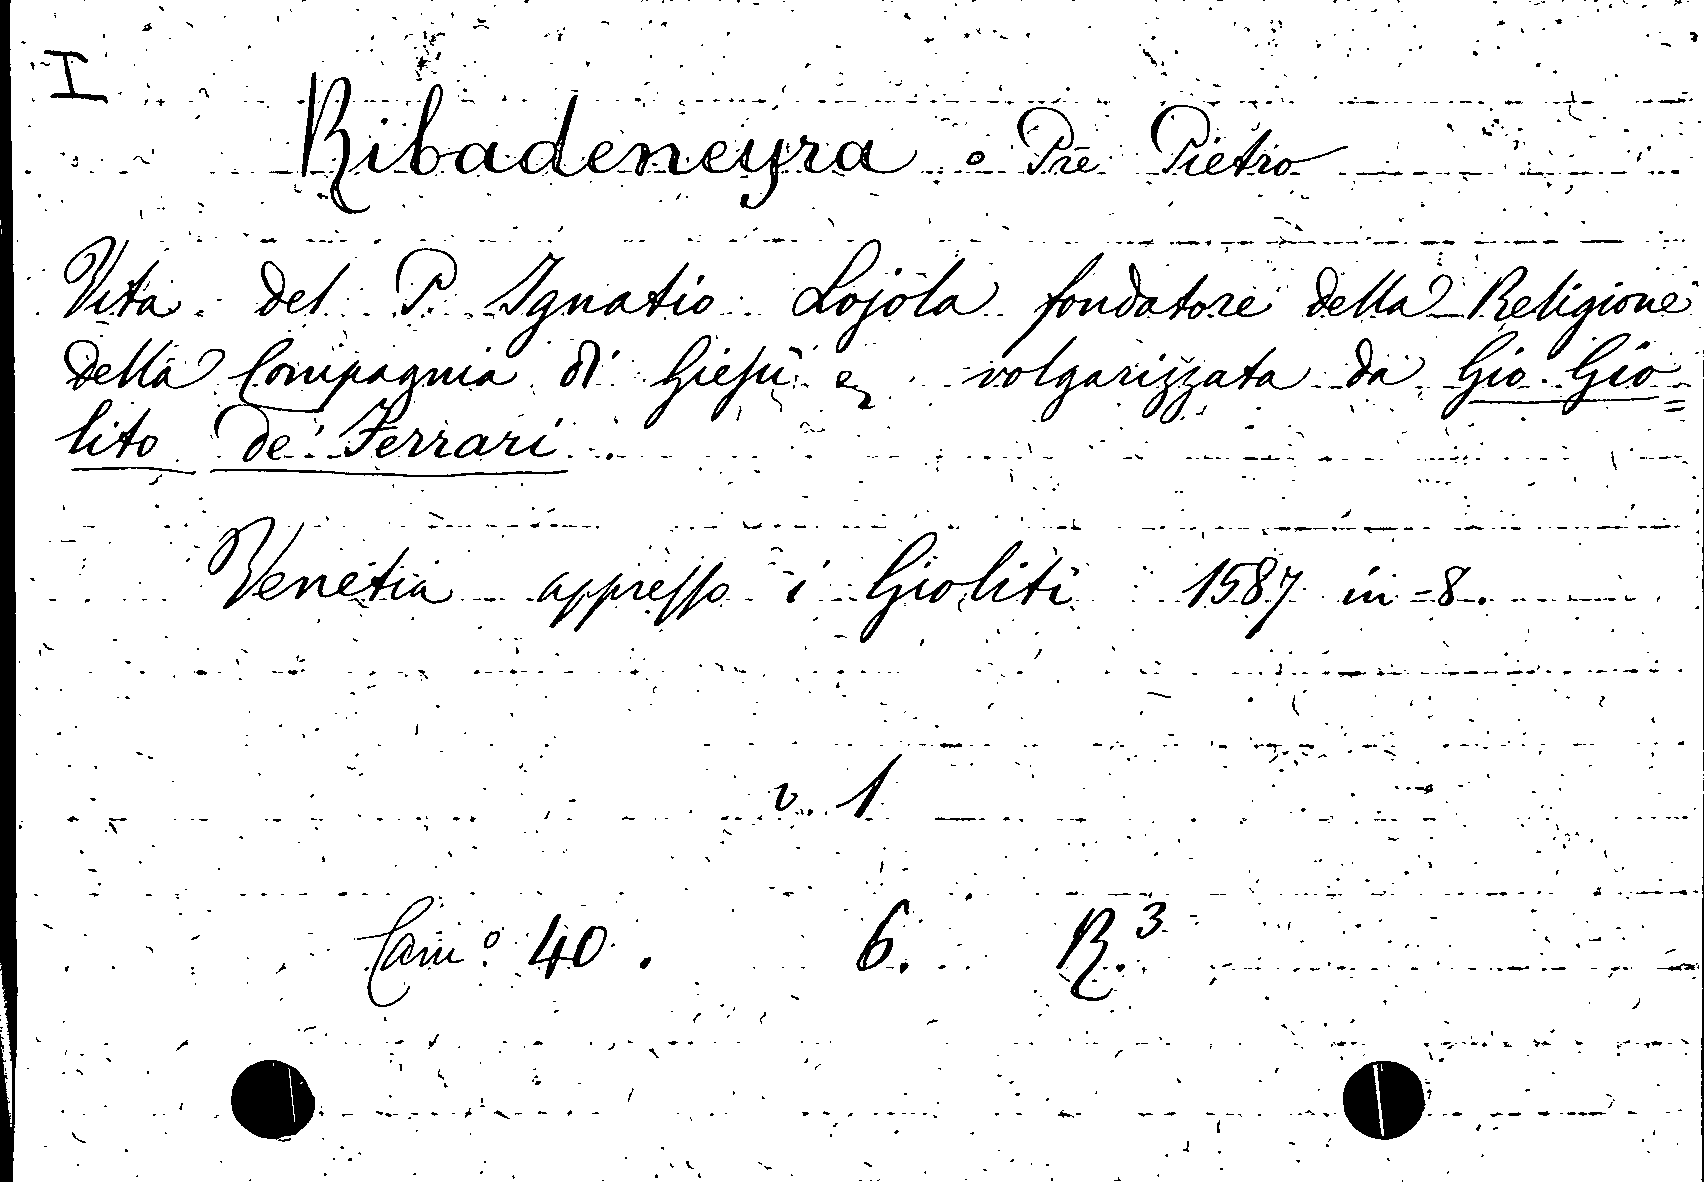 I
Ribadeneyra ° Pre Pietro
Vita del P. Ignatio Lojola fondatore della Religione
della Compagnia di Giesù volgarizzata da Gio. Gio=
lito de' Ferrari.
Venetia appresso i Gioliti 1587 in-8.
v. 1
Cam.° 40. 6. R.3